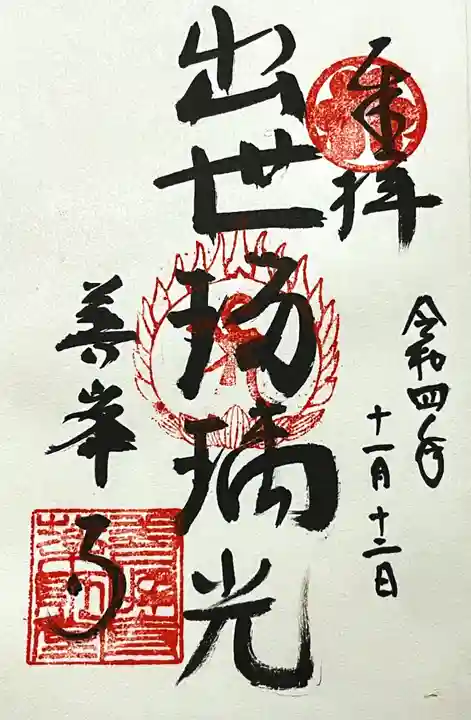 奉拝
令和四年
十一月十二日
出世瑠璃光
善峯寺